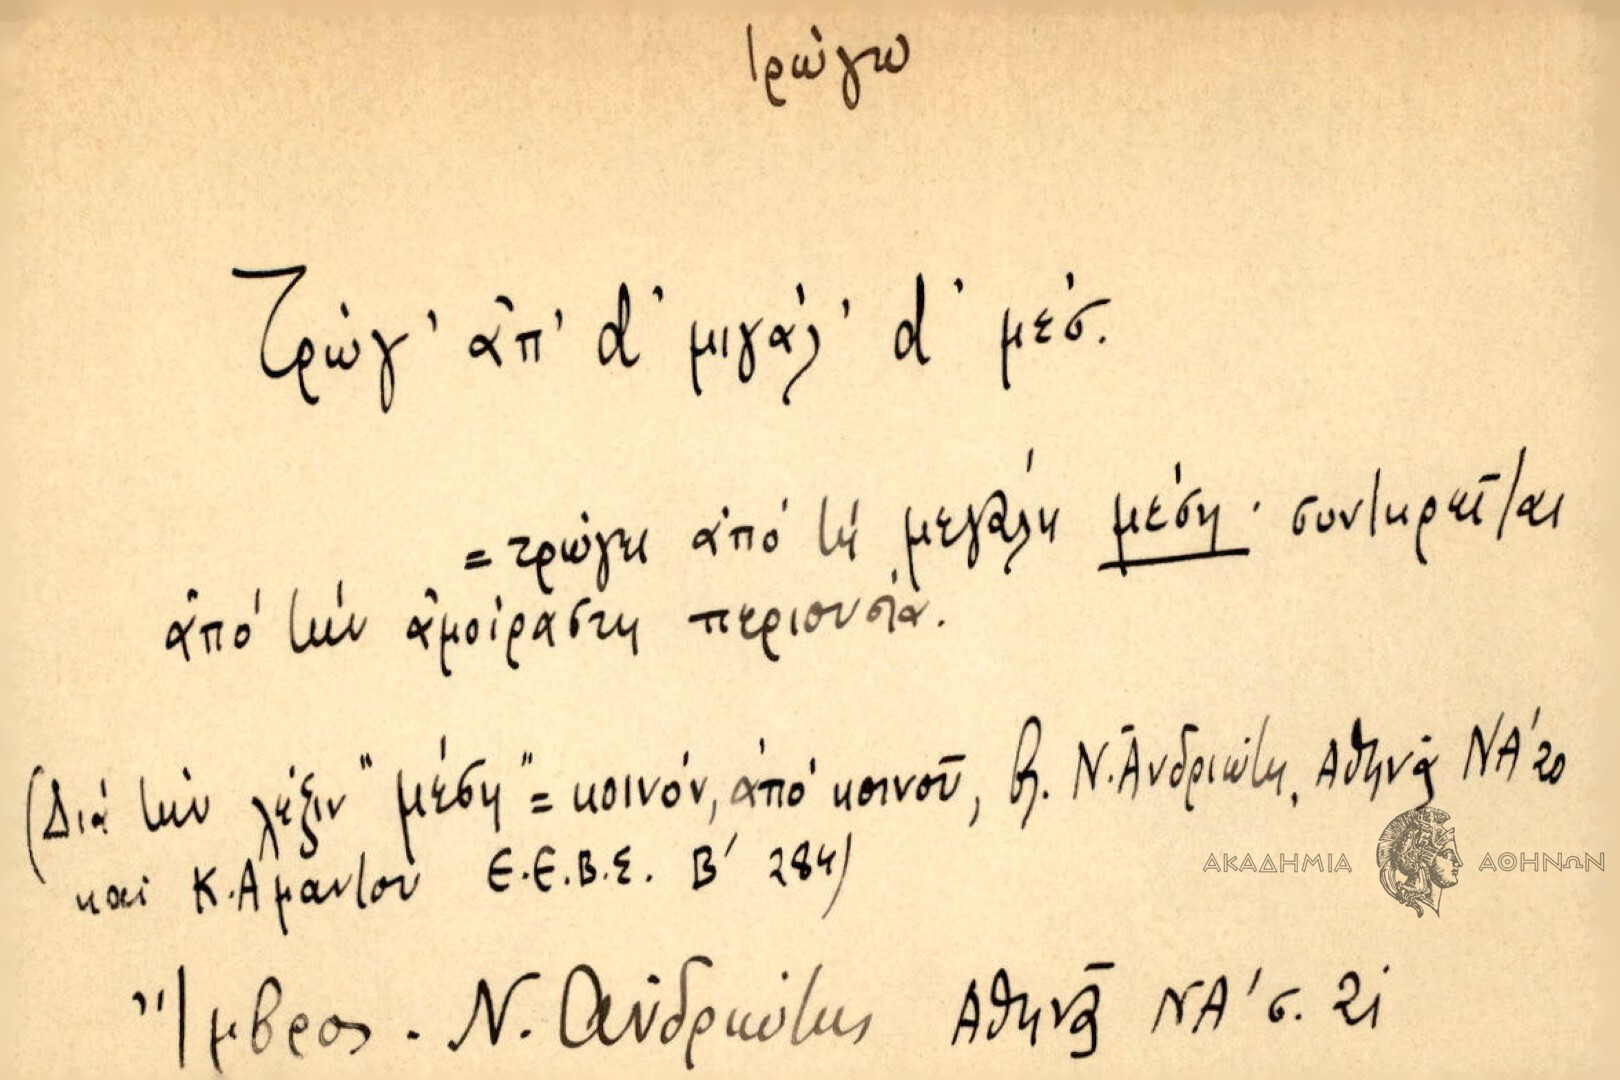 τρώγω
Τρώγ' ἀπ' d' μιγάλ' d' μέσ.
= τρώγει ἀπό τή μεγάλη μέση· συντηρεῖται
ἀπό τήν ἀμοίραστη περιουσία.
(Διά τήν λέξιν "μέση" = κοινόν, ἀπό κοινοῦ, βλ. Ν. Ἀνδριώτη, Ἀθηνᾶ ΝΑ' 20
και Κ. Αμαντου Ε.Ε.Β.Σ. Β' 284)
ΑΚΑΔΗΜΙΑ ΑΘΗΝΩΝ
Ἴμβρος. Ν. Ἀνδριώτης Ἀθηνᾶ ΝΑ' σ. 21